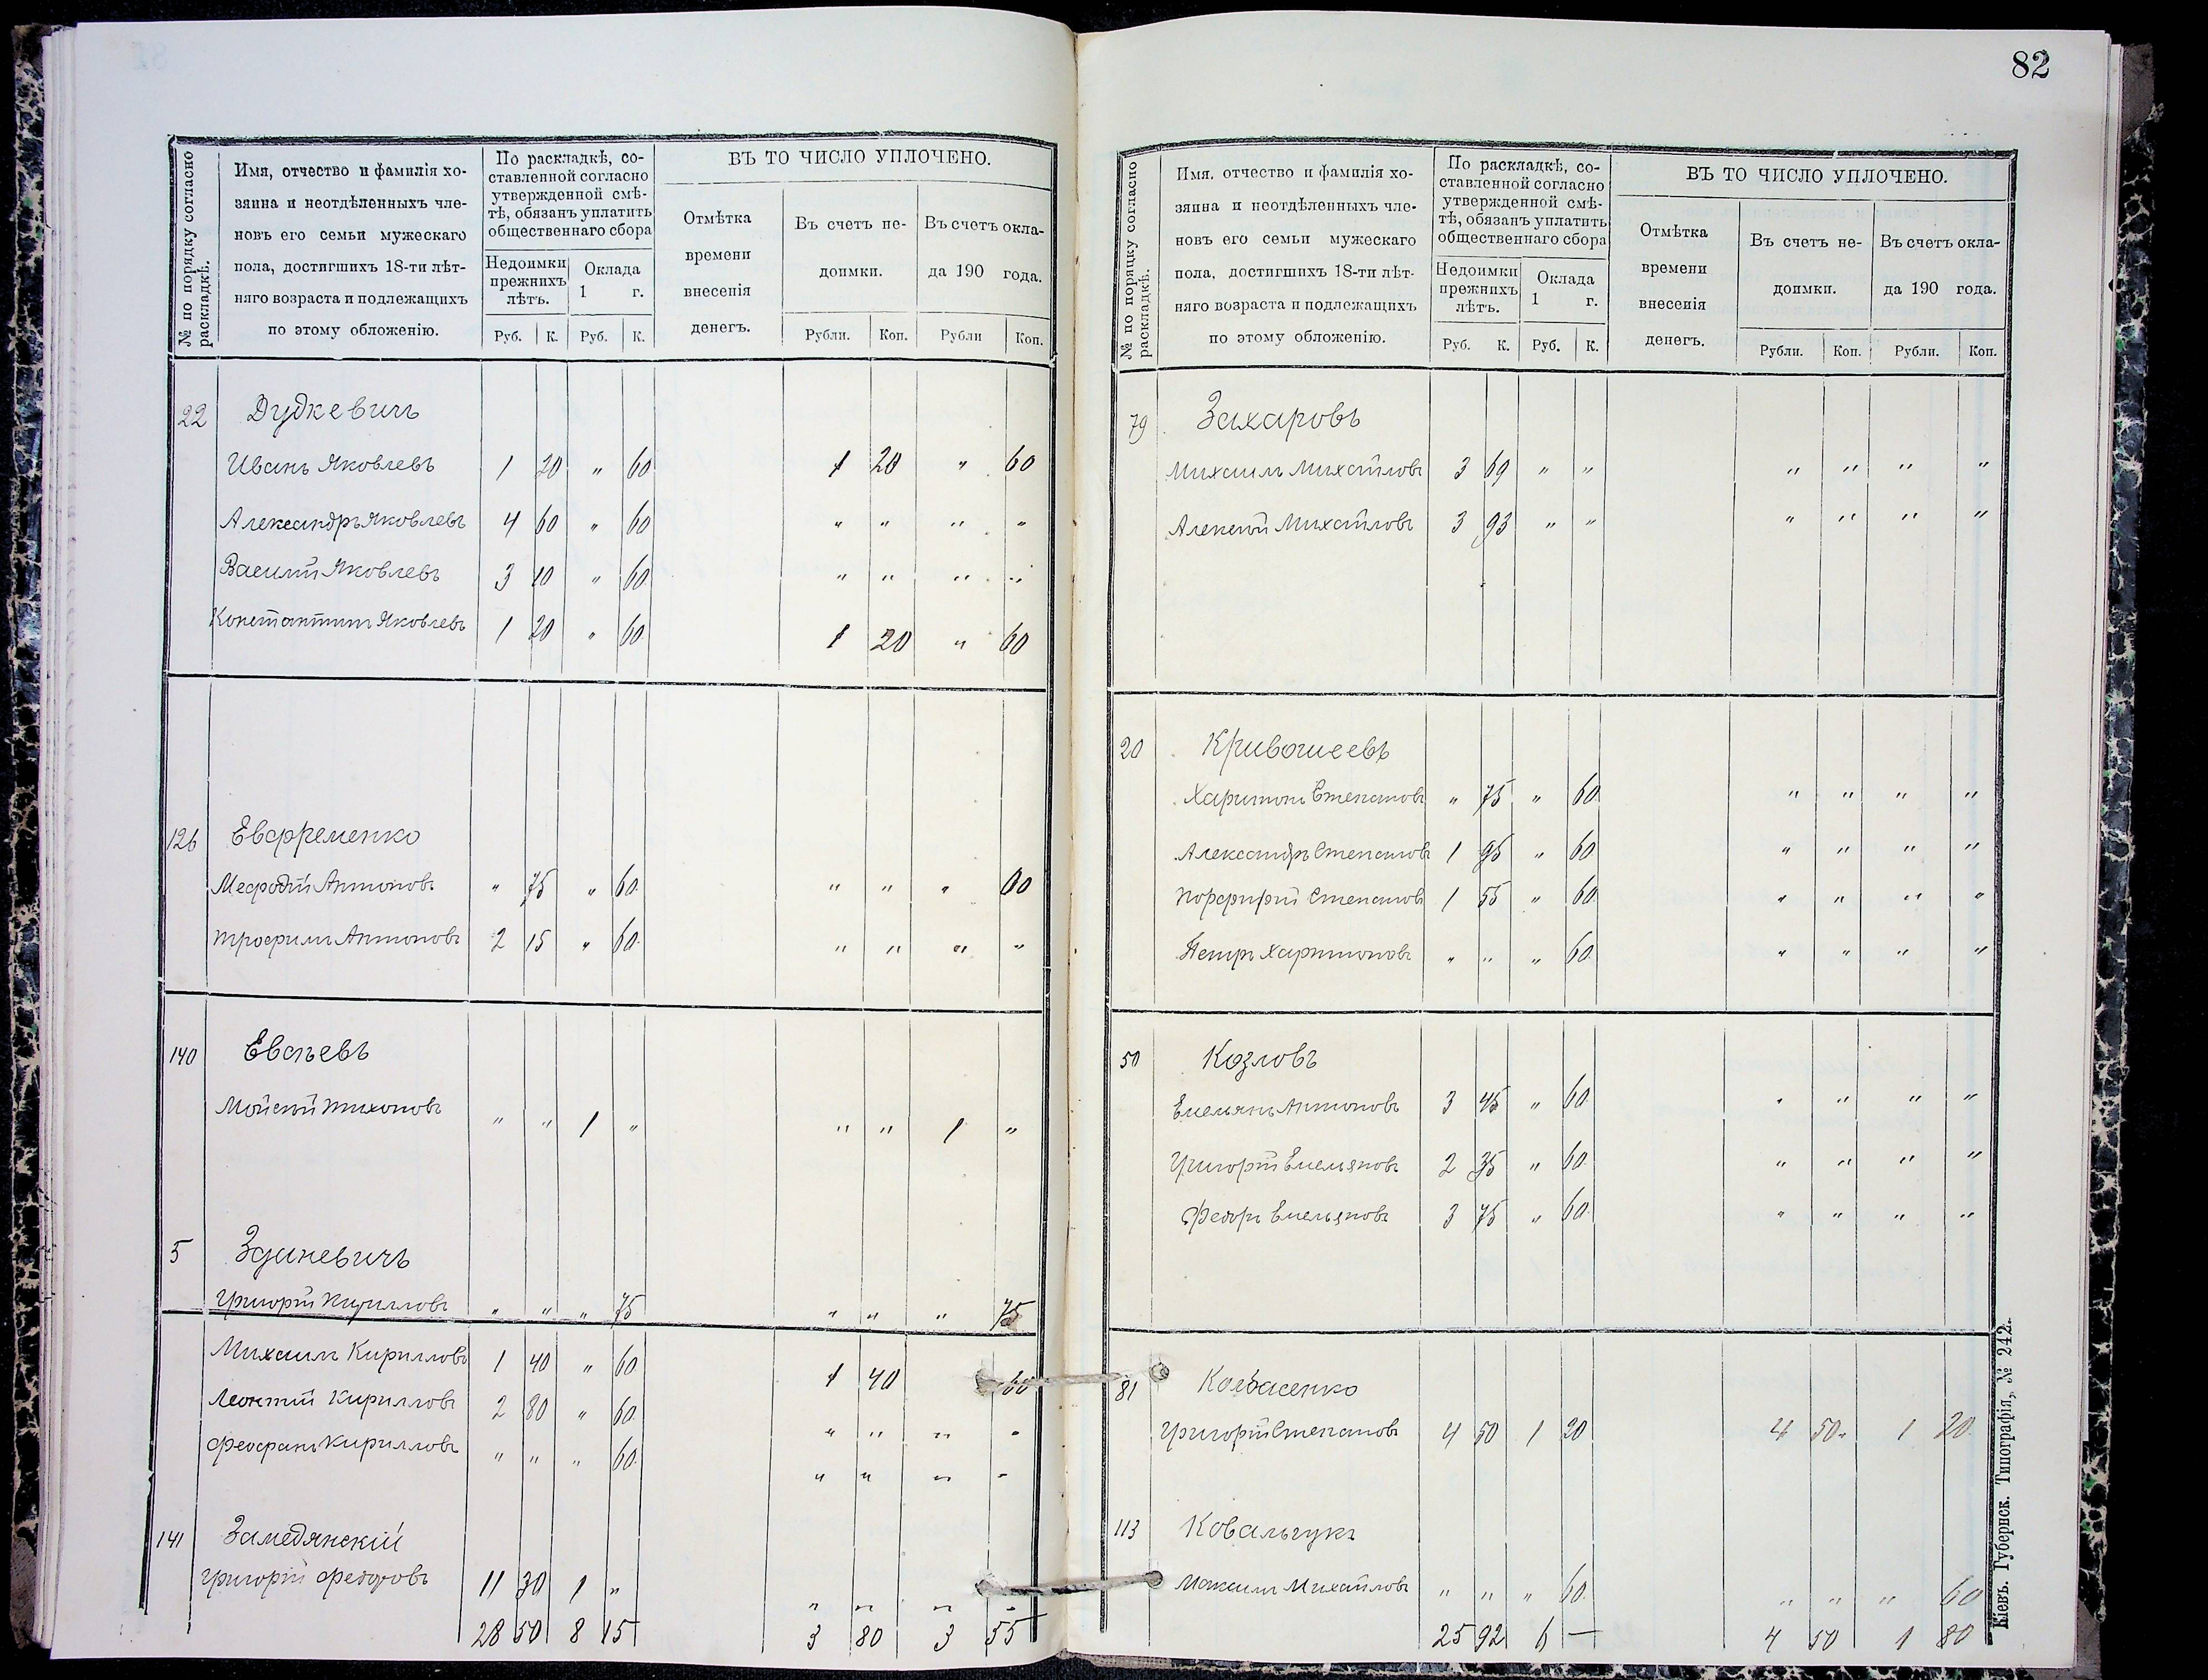 82
№ по порядку согласно раскладкѣ.
Имя, отчество и фамилія хо-
зяина и неотдѣленныхъ чле-
новъ его семьи мужескаго
пола, достигшихъ 18-ти лѣт-
няго возраста и подлежащихъ
по этому обложенію.
По раскладкѣ, со-
ставленной согласно
утвержденной смѣ-
тѣ, обязанъ уплатить
общественнаго сбора
Недоимки прежнихъ лѣтъ.
Оклада 1 г.
Руб. К. Руб. К.
ВЪ ТО ЧИСЛО УПЛОЧЕНО.
Отмѣтка времени внесенія денегъ.
Въ счетъ не-
доимки.
Въ счетъ окла-
да 190 года.
Рубли. Коп. Рубли Коп.
22 Дудкевичъ
Иванъ Яковлевъ 1 20 " 60 1 20 " 60
Александръ Яковлевъ 4 60 " 60 " " " "
Василій Яковлевъ 3 10 " 60 " " " "
Константинъ Яковлевъ 1 20 " 60 1 20 " 60
126 Евфременко
Мефодій Антоновъ " 75 " 60 " " " 60
Трофимъ Антоновъ 2 15 " 60 " " " "
140 Евсѣевъ
Мойсей Тихоновъ " " 1 " " " 1 "
5 Зданевичъ
Григорій Кирилловъ " " " 75 " " " 75
Михаилъ Кирилловъ 1 40 " 60 1 40 60
Леонтій Кирилловъ 2 80 " 60 " " " "
Феофанъ Кирилловъ " " " 60 " " " "
141 Замедянскій
Григорій Федоровъ 11 30 1 " " " " "
28 50 8 15 3 80 3 55
№ по порядку согласно раскладкѣ.
Имя, отчество и фамилія хо-
зяина и неотдѣленныхъ чле-
новъ его семьи мужескаго
пола, достигшихъ 18-ти лѣт-
няго возраста и подлежащихъ
по этому обложенію.
По раскладкѣ, со-
ставленной согласно
утвержденной смѣ-
тѣ, обязанъ уплатить
общественнаго сбора
Недоимки прежнихъ лѣтъ.
Оклада 1 г.
Руб. К. Руб. К.
ВЪ ТО ЧИСЛО УПЛОЧЕНО.
Отмѣтка времени внесенія денегъ.
Въ счетъ не-
доимки.
Въ счетъ окла-
да 190 года.
Рубли. Коп. Рубли. Коп.
79 Захаровъ
Михаилъ Михайловъ 3 69 " " " " " "
Алексѣй Михайловъ 3 93 " " " " " "
20 Кривошеевъ
Харитонъ Степановъ " 75 " 60 " " " "
Александръ Степановъ 1 95 " 60 " " " "
Порфирій Степановъ 1 55 " 60 " " " "
Петръ Харитоновъ " " " 60 " " " "
50 Козловъ
Емельянъ Антоновъ 3 45 " 60 " " " "
Григорій Емельяновъ 2 35 " 60 " " " "
Федоръ Емельяновъ 3 75 " 60 " " " "
81 Колбасенко
Григорій Степановъ 4 50 1 20 4 50 1 20
113 Ковальчукъ
Максимъ Михайловъ " " " 60 " " " 60
25 92 6 — 4 50 1 80
Кіевъ. Губернск. Типографія, № 242.